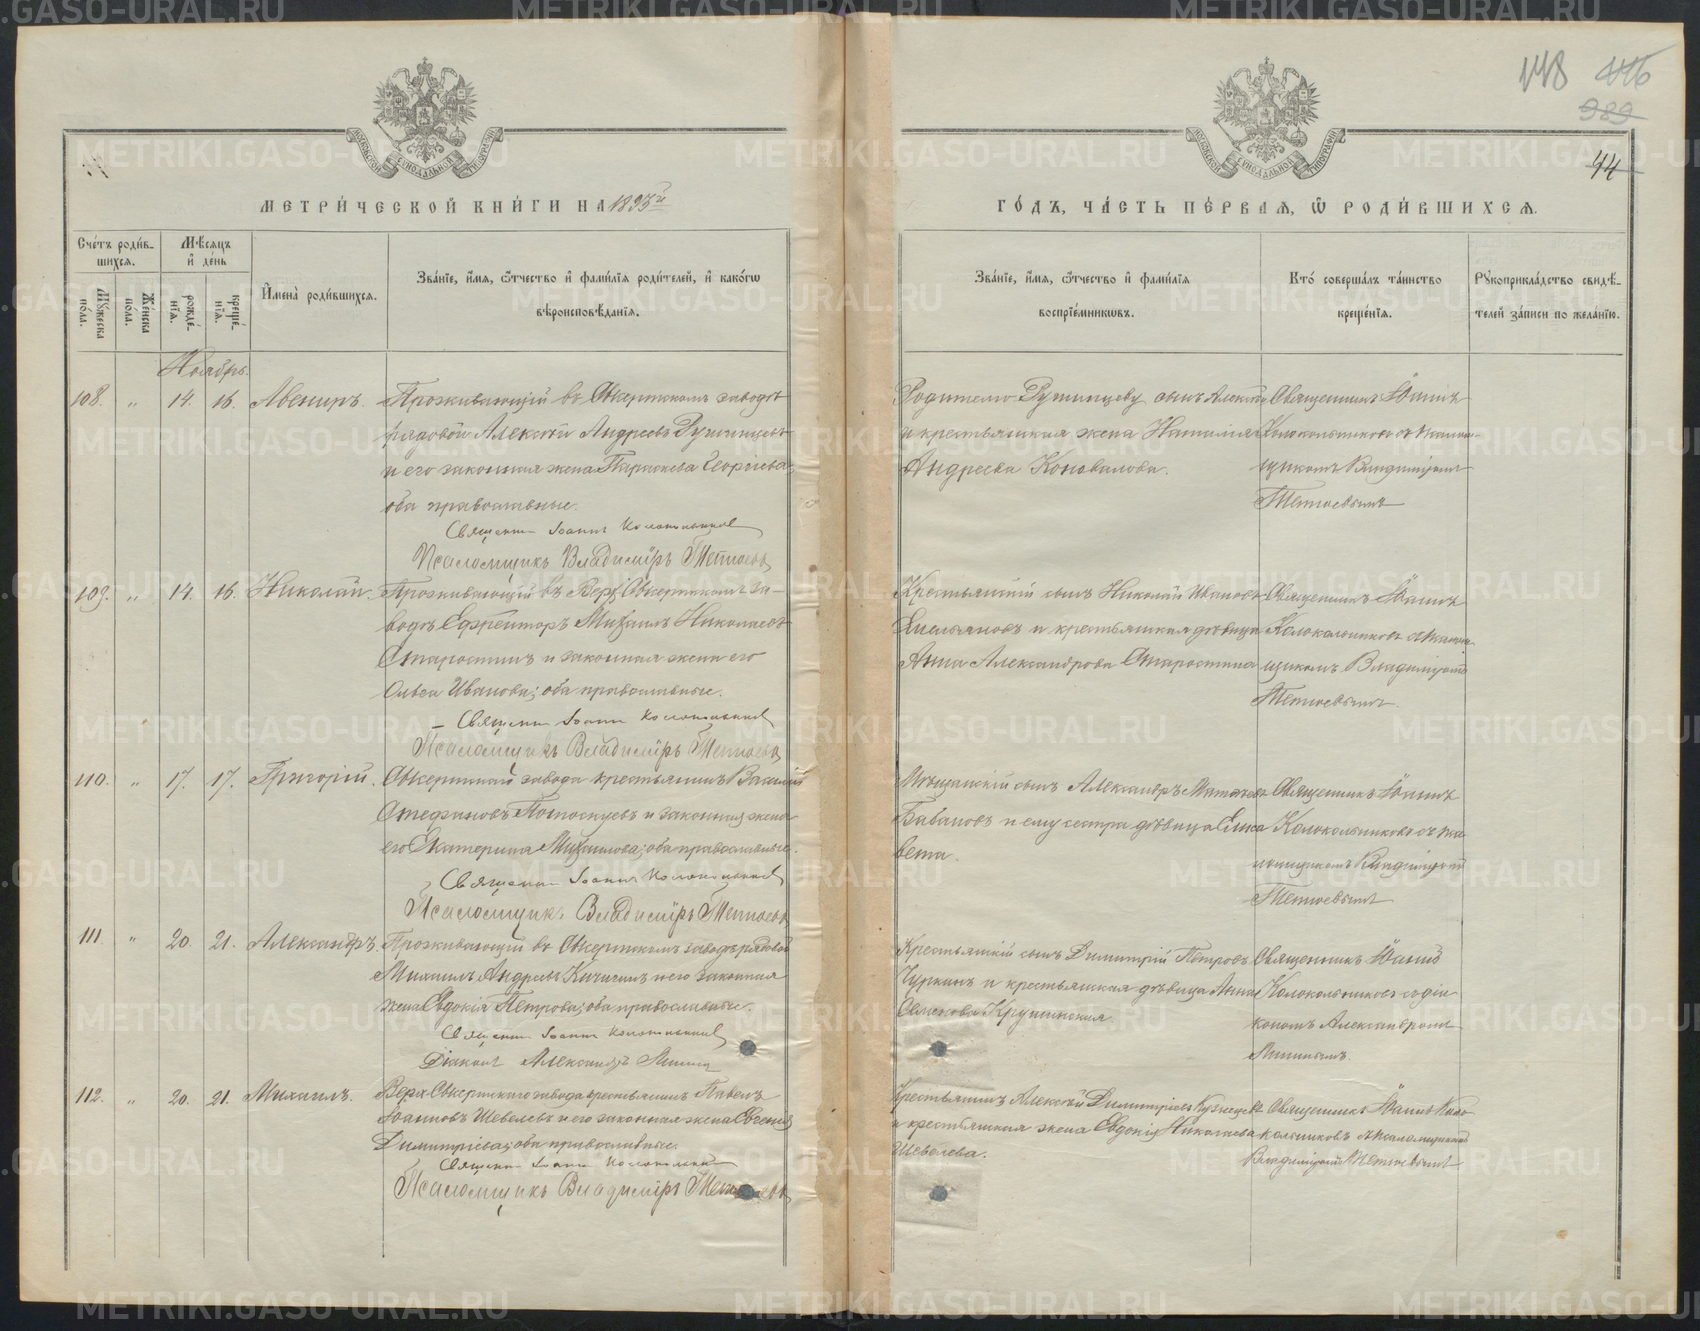 148 446
989
44
МОСКОВСКОЙ СУНОДАЛЬНОЙ ТИПОГРАФІИ
МОСКОВСКОЙ СУНОДАЛЬНОЙ ТИПОГРАФІИ
МЕТРИ́ЧЕСКОЙ КНИ́ГИ НА 1895й
ГО́ДЪ, ЧА́СТЬ ПЕ́РВАЯ, Ѡ РОДИ́ВШИХСЯ.
Сче́тъ роди́в-
шихся.
Мѣ́сяцъ
и҆ де́нь
Мꙋ́жеска
по́ла.
Же́нска
по́ла.
рожде́-
нїя.
креще́-
нїя.
И҆мена̀ роди́вшихся.
Зва́нїе, и҆́мя, ѻ҆́тчество и҆ фами́лїя роди́телей, и҆ како́гѡ
вѣроисповѣ́данїя.
Зва́нїе, и҆́мя, ѻ҆́тчество и҆ фами́лїя
воспрїе́мникѡвъ.
Кто̀ соверша́лъ та́инство
креще́нїя.
Рꙋкоприкла́дство свидѣ́-
телей за́писи по жела́нїю.
Ноябрь.
108. „ 14. 16. Авениръ.
Проживающій въ Сысертскомъ заводѣ
рядовой Алексѣй Андреевъ
и его законная жена Параскева Георгіева,
оба православные.
Священникъ Іоаннъ Колокольниковъ
Псаломщикъ Владиміръ
сынъ
и крестьянская жена Наталія
Андреева Коновалова.
Священникъ Іоаннъ
Колокольниковъ съ псалом-
щикомъ Владиміромъ
109. „ 14. 16. Николай.
Проживающій въ Верх-Сысертскомъ за-
водѣ Ефрейторъ Михаилъ Николаевъ
Старостинъ и законная жена его
Ольга Иванова; оба православные.
Священникъ Іоаннъ Колокольниковъ
Псаломщикъ Владиміръ
Крестьянскій сынъ Николай Ивановъ
Емельяновъ и крестьянская дѣвица
Анна Александрова Старостина
Священникъ Іоаннъ
Колокольниковъ съ псалом-
щикомъ Владиміромъ
110. „ 17. 17. Григорій.
Сысертскаго завода крестьянинъ Василій
Стефановъ Потоскуевъ и законная жена
его Екатерина Михаилова; оба православные.
Священникъ Іоаннъ Колокольниковъ
Псаломщикъ Владиміръ
Мѣщанскій сынъ Александръ
и ему сестра дѣвица Елиса
вета.
Священникъ Іоаннъ
Колокольниковъ съ пса-
ломщикомъ Владиміромъ
111. „ 20. 21. Александръ.
Проживающій въ Сысертскомъ заводѣ рядовой
Михаилъ Андреевъ Кичигинъ и его законная
жена Евдокія Петрова; оба православные.
Священникъ Іоаннъ Колокольниковъ
Діаконъ Александръ
Крестьянскій сынъ Димитрій Петровъ
Чуркинъ и крестьянская дѣвица Анна
Священникъ Іоаннъ
Колокольниковъ съ діа-
кономъ Александромъ
112. „ 20. 21. Михаилъ.
Верх-Сысертскаго завода крестьянинъ Павелъ
Іоанновъ Шевелевъ и его законная жена Евгенія
Димитріева; оба православные.
Священникъ Іоаннъ Колокольниковъ
Псаломщикъ Владиміръ
Крестьянинъ Алексѣй Димитріевъ Кузнецовъ
и крестьянская жена Евдокія Николаева
Шевелева.
Священникъ Іоаннъ Коло-
кольниковъ съ псаломщикомъ
Владиміромъ
METRIKI.GASO-URAL.RU